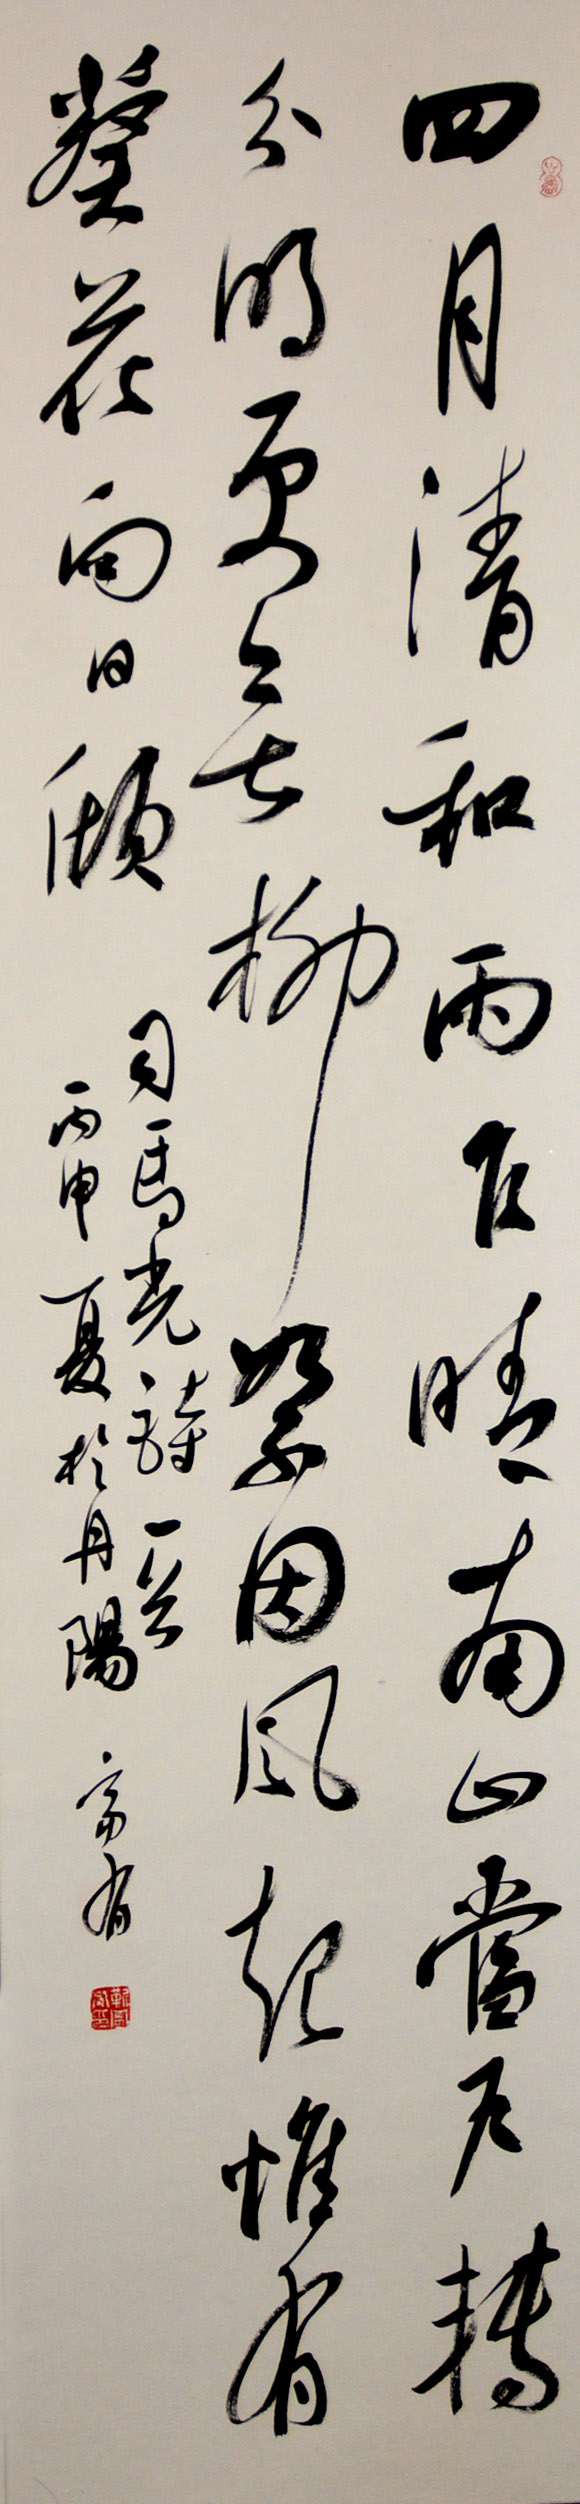 四月清和雨乍晴南山當户轉
分明更无柳絮因風起惟有
葵花向日傾
司馬光詩一首
丙申夏於丹陽 富有